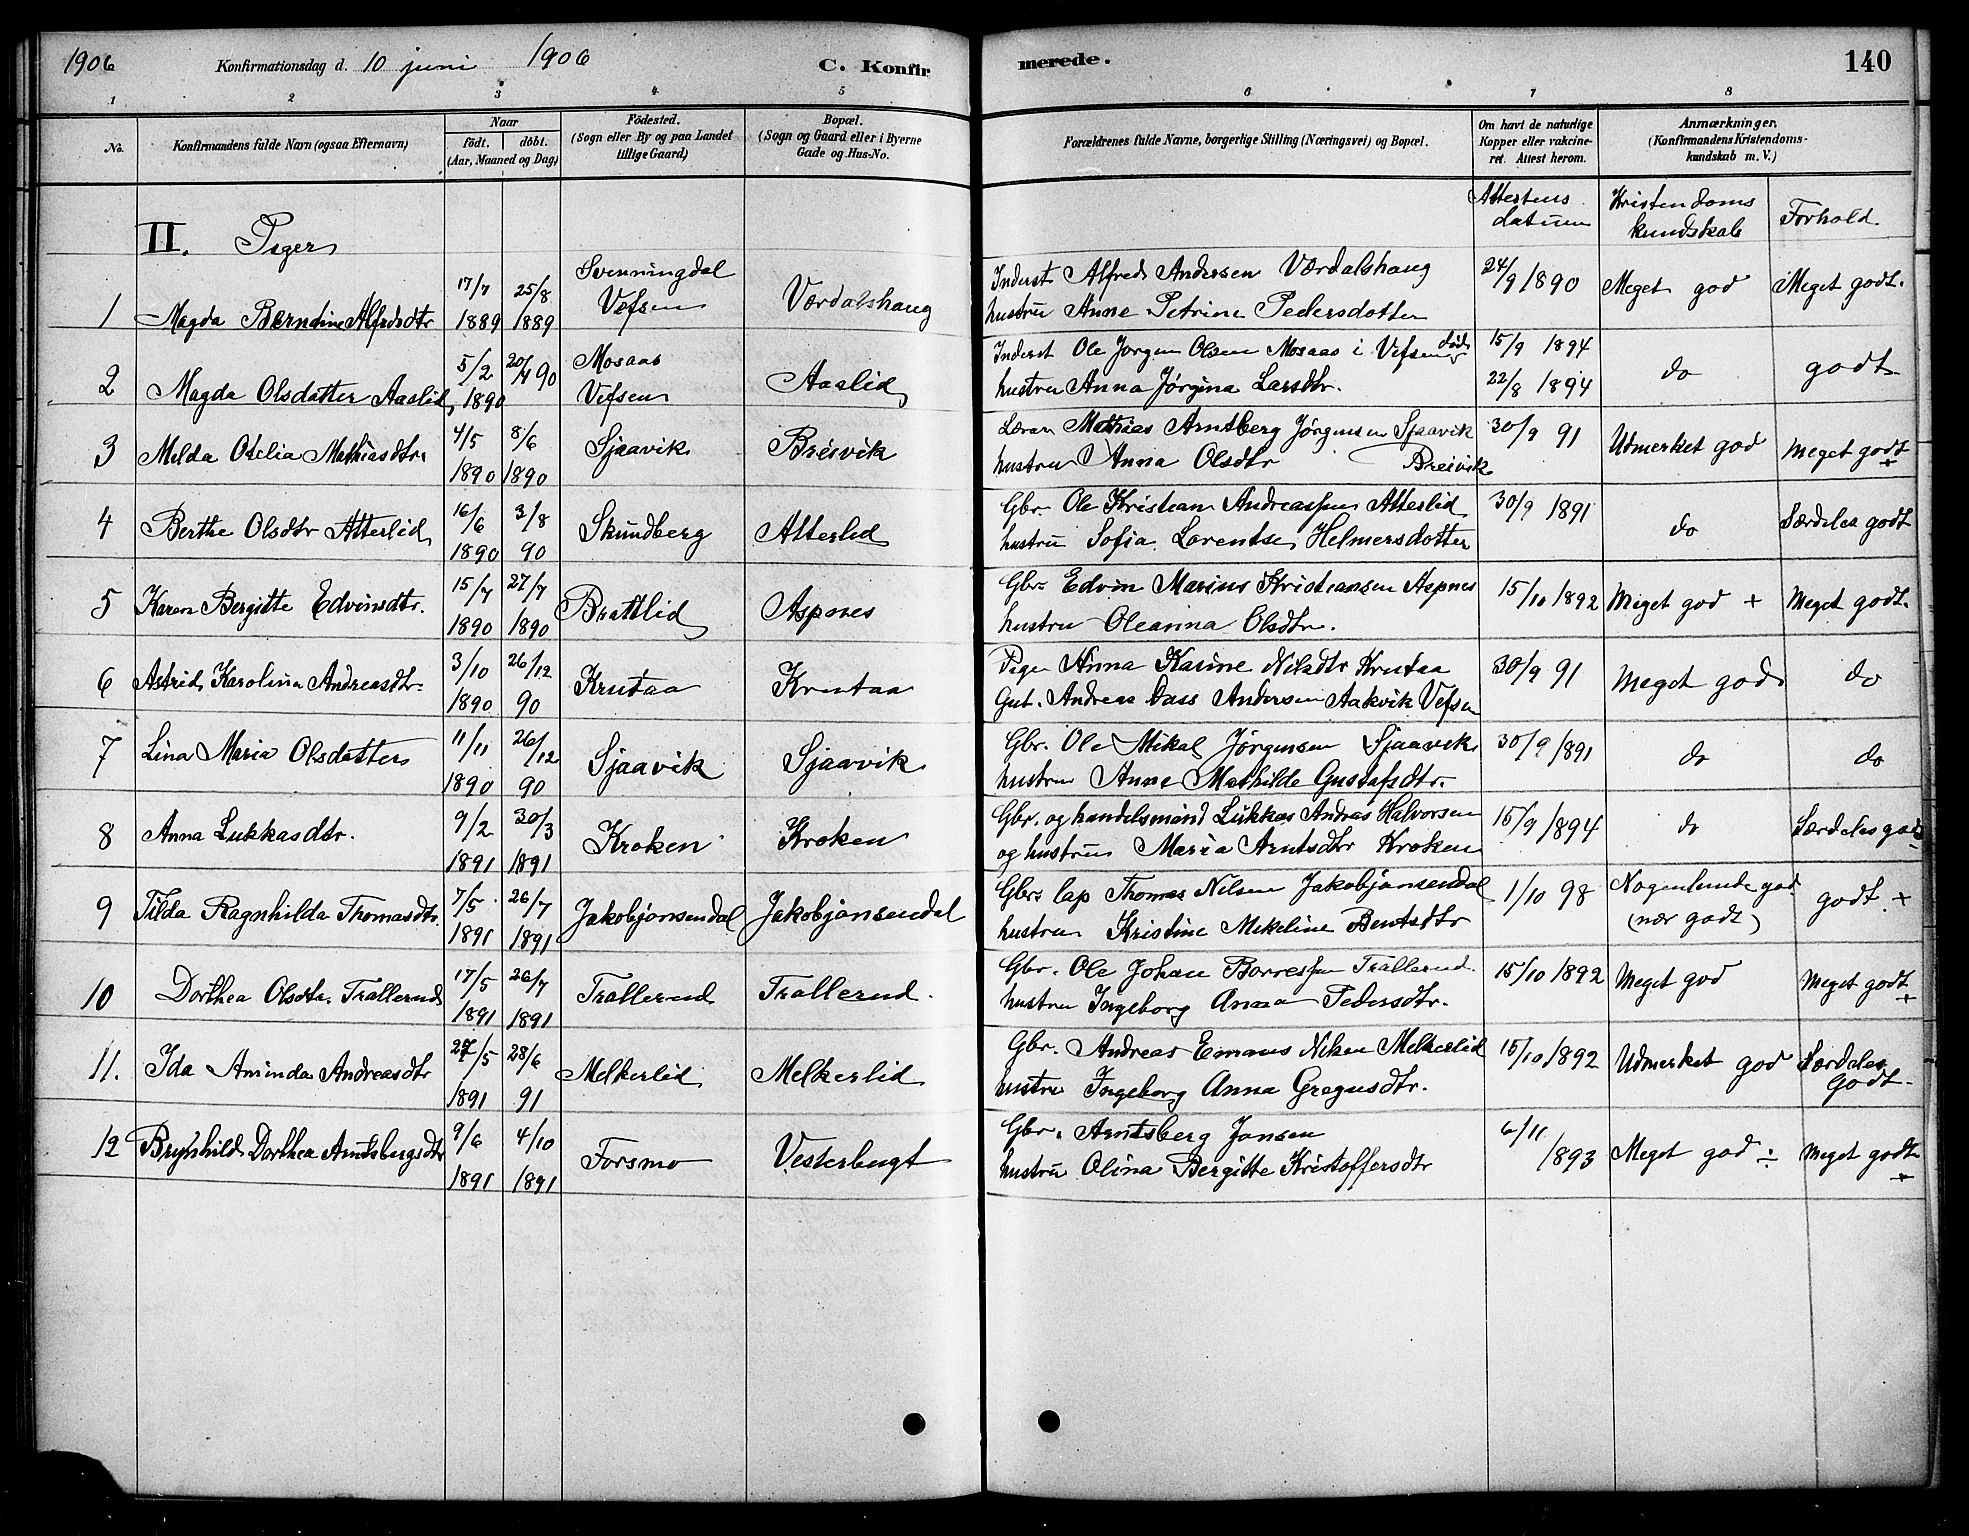 1906 Konfirmationsdag d. 10 juni 1906 C. Konfir merede. 140
1 2 3 4 5 6 7 8
No. Konfirmandens fulde Navn (ogsaa Efternavn) Naar født. døbt. (Aar, Maaned og Dag) Fødested. (Sogn eller By og paa Landet tillige Gaard) Bopæl. (Sogn og Gaard eller i Byerne Gade og Hus-No. Forældrenes fulde Navne, borgerlige Stilling (Næringsvei) og Bopæl. Om havt de naturlige Kopper eller vakcineret. Attest herom. Anmærkninger. (Konfirmandens Kristendomskundskab m. V.)
Attestens datum Kristendoms kundskab Forhold.
II. Piger
17/7 25/8 Svenningdal Inderst Alfred Andersen Værdalshaug 24/9 1890
1 Magda Berndine Alfredsdtr 1889 1889 Vefsen Værdalshaug hustru Anne Petrine Pedersdotter Meget god Meget godt.
5/2 20/4 90 Mosaas Inderst Ole Jørgen Olsen Mosaas i Vefsen død 15/9 1894
2 Magda Olsdatter Aaslid 1890 Vefsen Aaslid hustru Anna Jørgina Larsdtr. 22/8 1894 do godt
4/5 8/6 Lærer Mathias Arntsberg Jørgensen Sjaavik 30/9 91
3 Melda Otelia Mathiasdtr 1890 1890 Sjaavik Breivik hustru Anna Olsdtr Breivik Udmerket god Meget godt +
16/6 3/8 Gbr. Ole Kristian Andreassen Atterlid 30/9 1891
4 Berthe Olsdtr Atterlid 1890 90 Skundberg Atterlid hustru Sofia Lorentse Helmersdotter do Særdeles godt
15/7 27/7 Gbr. Edvin Marius Kristiansen Aspnes 15/10 1892
5 Karen Bergitte Edvinsdtr. 1890 1890 Brattlid Aspnes hustru Oleanna Olsdtr. Meget god + Meget godt.
3/10 26/12 Pige Anna Karine Nilsdtr Krutaa 30/9 91
6 Astrid Karolina Andreasdtr. 1890 90 Krutaa Krutaa Gut. Andreas Dass Andersen Aakvik Vefsen Meget god do
11/11 26/12 Gbr. Ole Mikal Jørgensen Sjaavik 30/9 1891
7 Lina Maria Olsdatter 1890 90 Sjaavik Sjaavik hustru Anne Mathilde Gustafsdtr. do do
9/2 30/3 Gbr. og handelsmand Lukkas Andreas Halvorsen 15/9 1894
8 Anna Lukkasdtr. 1891 1891 Kroken Kroken og hustru Maria Arntsdtr Kroken do Særdeles godt
7/5 26/7 Gbr. lap Thomas Nilsen Jakobjonsendal 1/10 98 Nogenlunde god
9 Tilda Ragnhilda Thomasdtr. 1891 1891 Jakobjonsendal Jakobjonsendal hustru Kristine Mekeline Bentsdtr (nær godt) godt. +
17/5 26/7 Gbr. Ole Johan Borresen Trallerud 15/10 1892
10 Dorthea Olsdtr. Trallerud 1891 1891 Trallerud Trallerud. hustru Ingeborg Anna Pedersdtr. Meget god Meget godt +
27/5 28/6 Gbr. Andreas Emaus Nilsen Melkerlid 15/10 1892
11. Ida Aminda Andreasdtr 1891 91 Melkerlid Melkerlid hustru Ingeborg Anna Gregusdtr. Udmerket god Særdeles godt.
9/6 4/10 Gbr. Arntsberg Jonsen 6/11
12 Brynhild Dorthea Arntsbergsdtr 1891 1891 Forsmo Vesterbugt hustru Olina Bergitte Kristoffersdtr 1893 Meget god ÷ Meget godt +